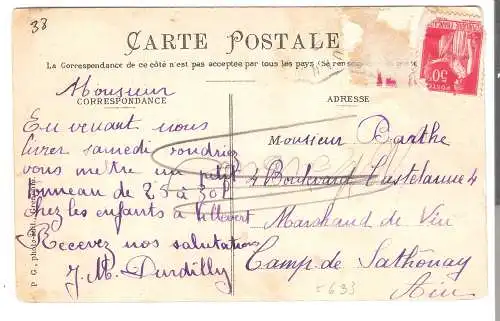 38
CARTE POSTALE
La Correspondance de ce côté n'est pas acceptée par tous les pays (Se
CORRESPONDANCE
Monsieur
En venant nous
livrer samedi voudriez
vous mettre un petit
tonneau de 25 à 30 l
chez les enfants à
Recevez nos salutations
J. M. Durdilly
ADRESSE
Monsieur Barthe
4 Boulevard Castelanne 4
Marchand de Vin
Camp de Sathonay
Ain
50
POSTES